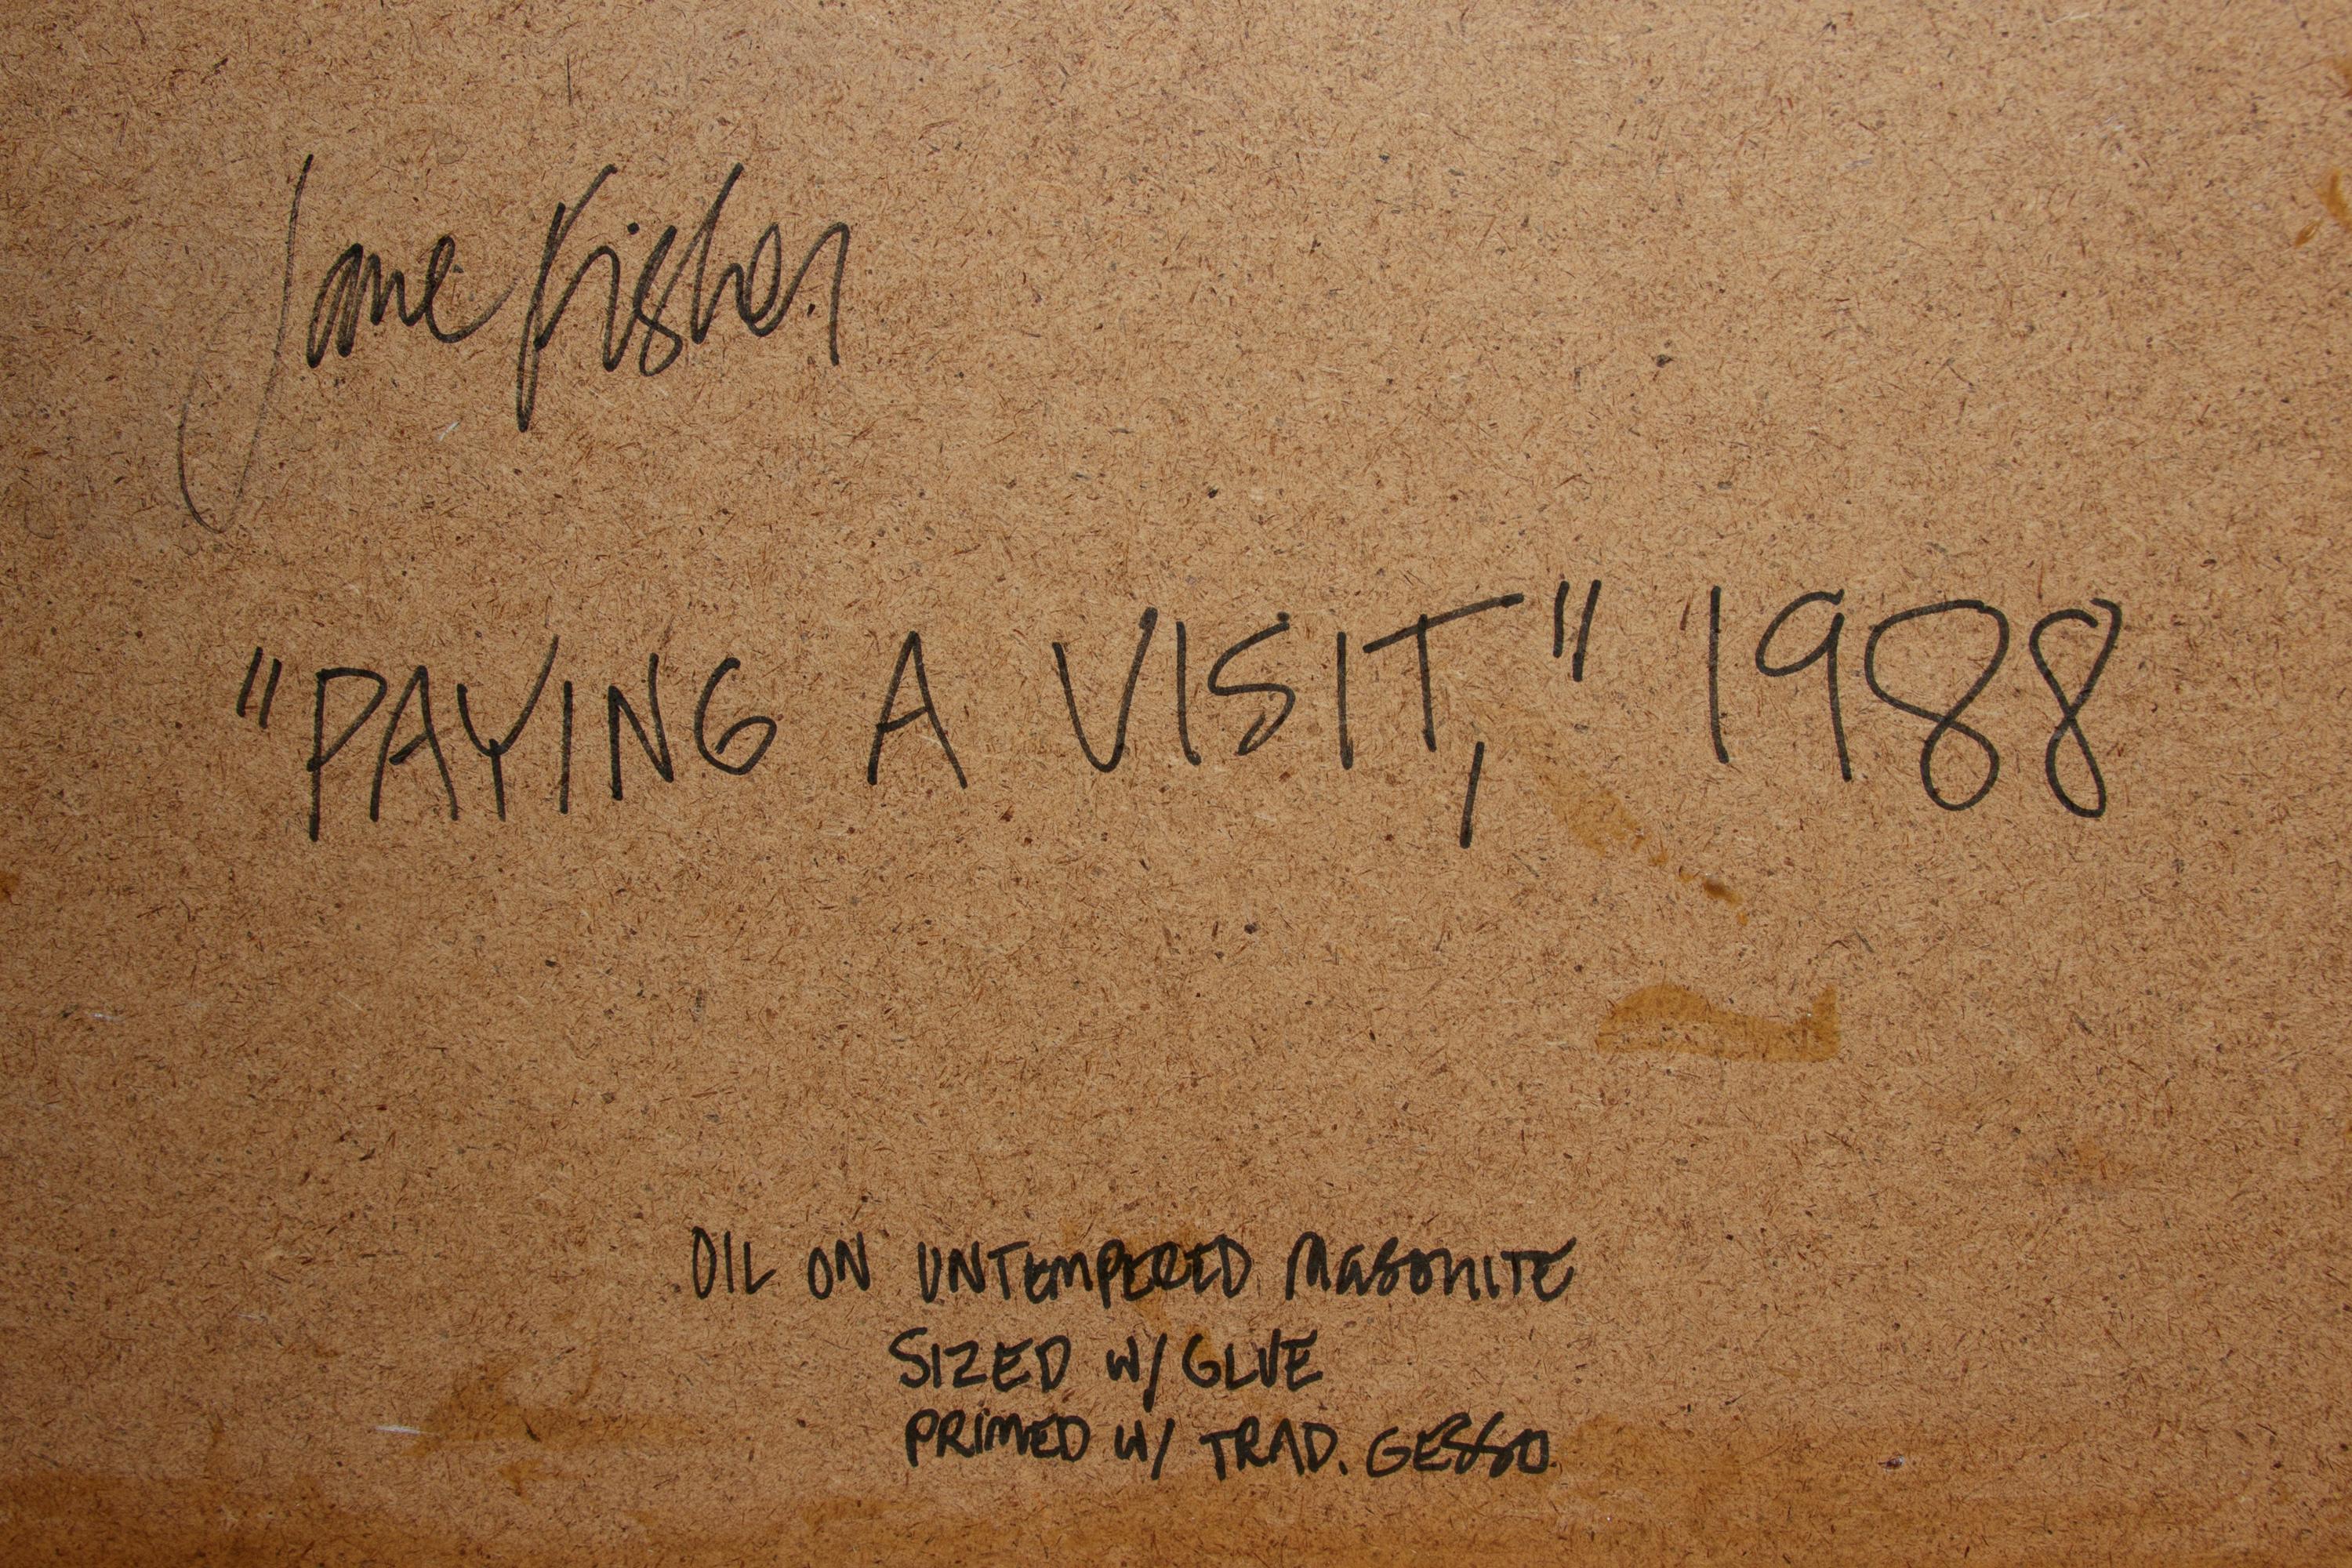 Jane Fisher
"PAYING A VISIT," 1988
OIL ON UNTEMPERED MASONITE
SIZED W/ GLUE
PRIMED W/ TRAD. GESSO